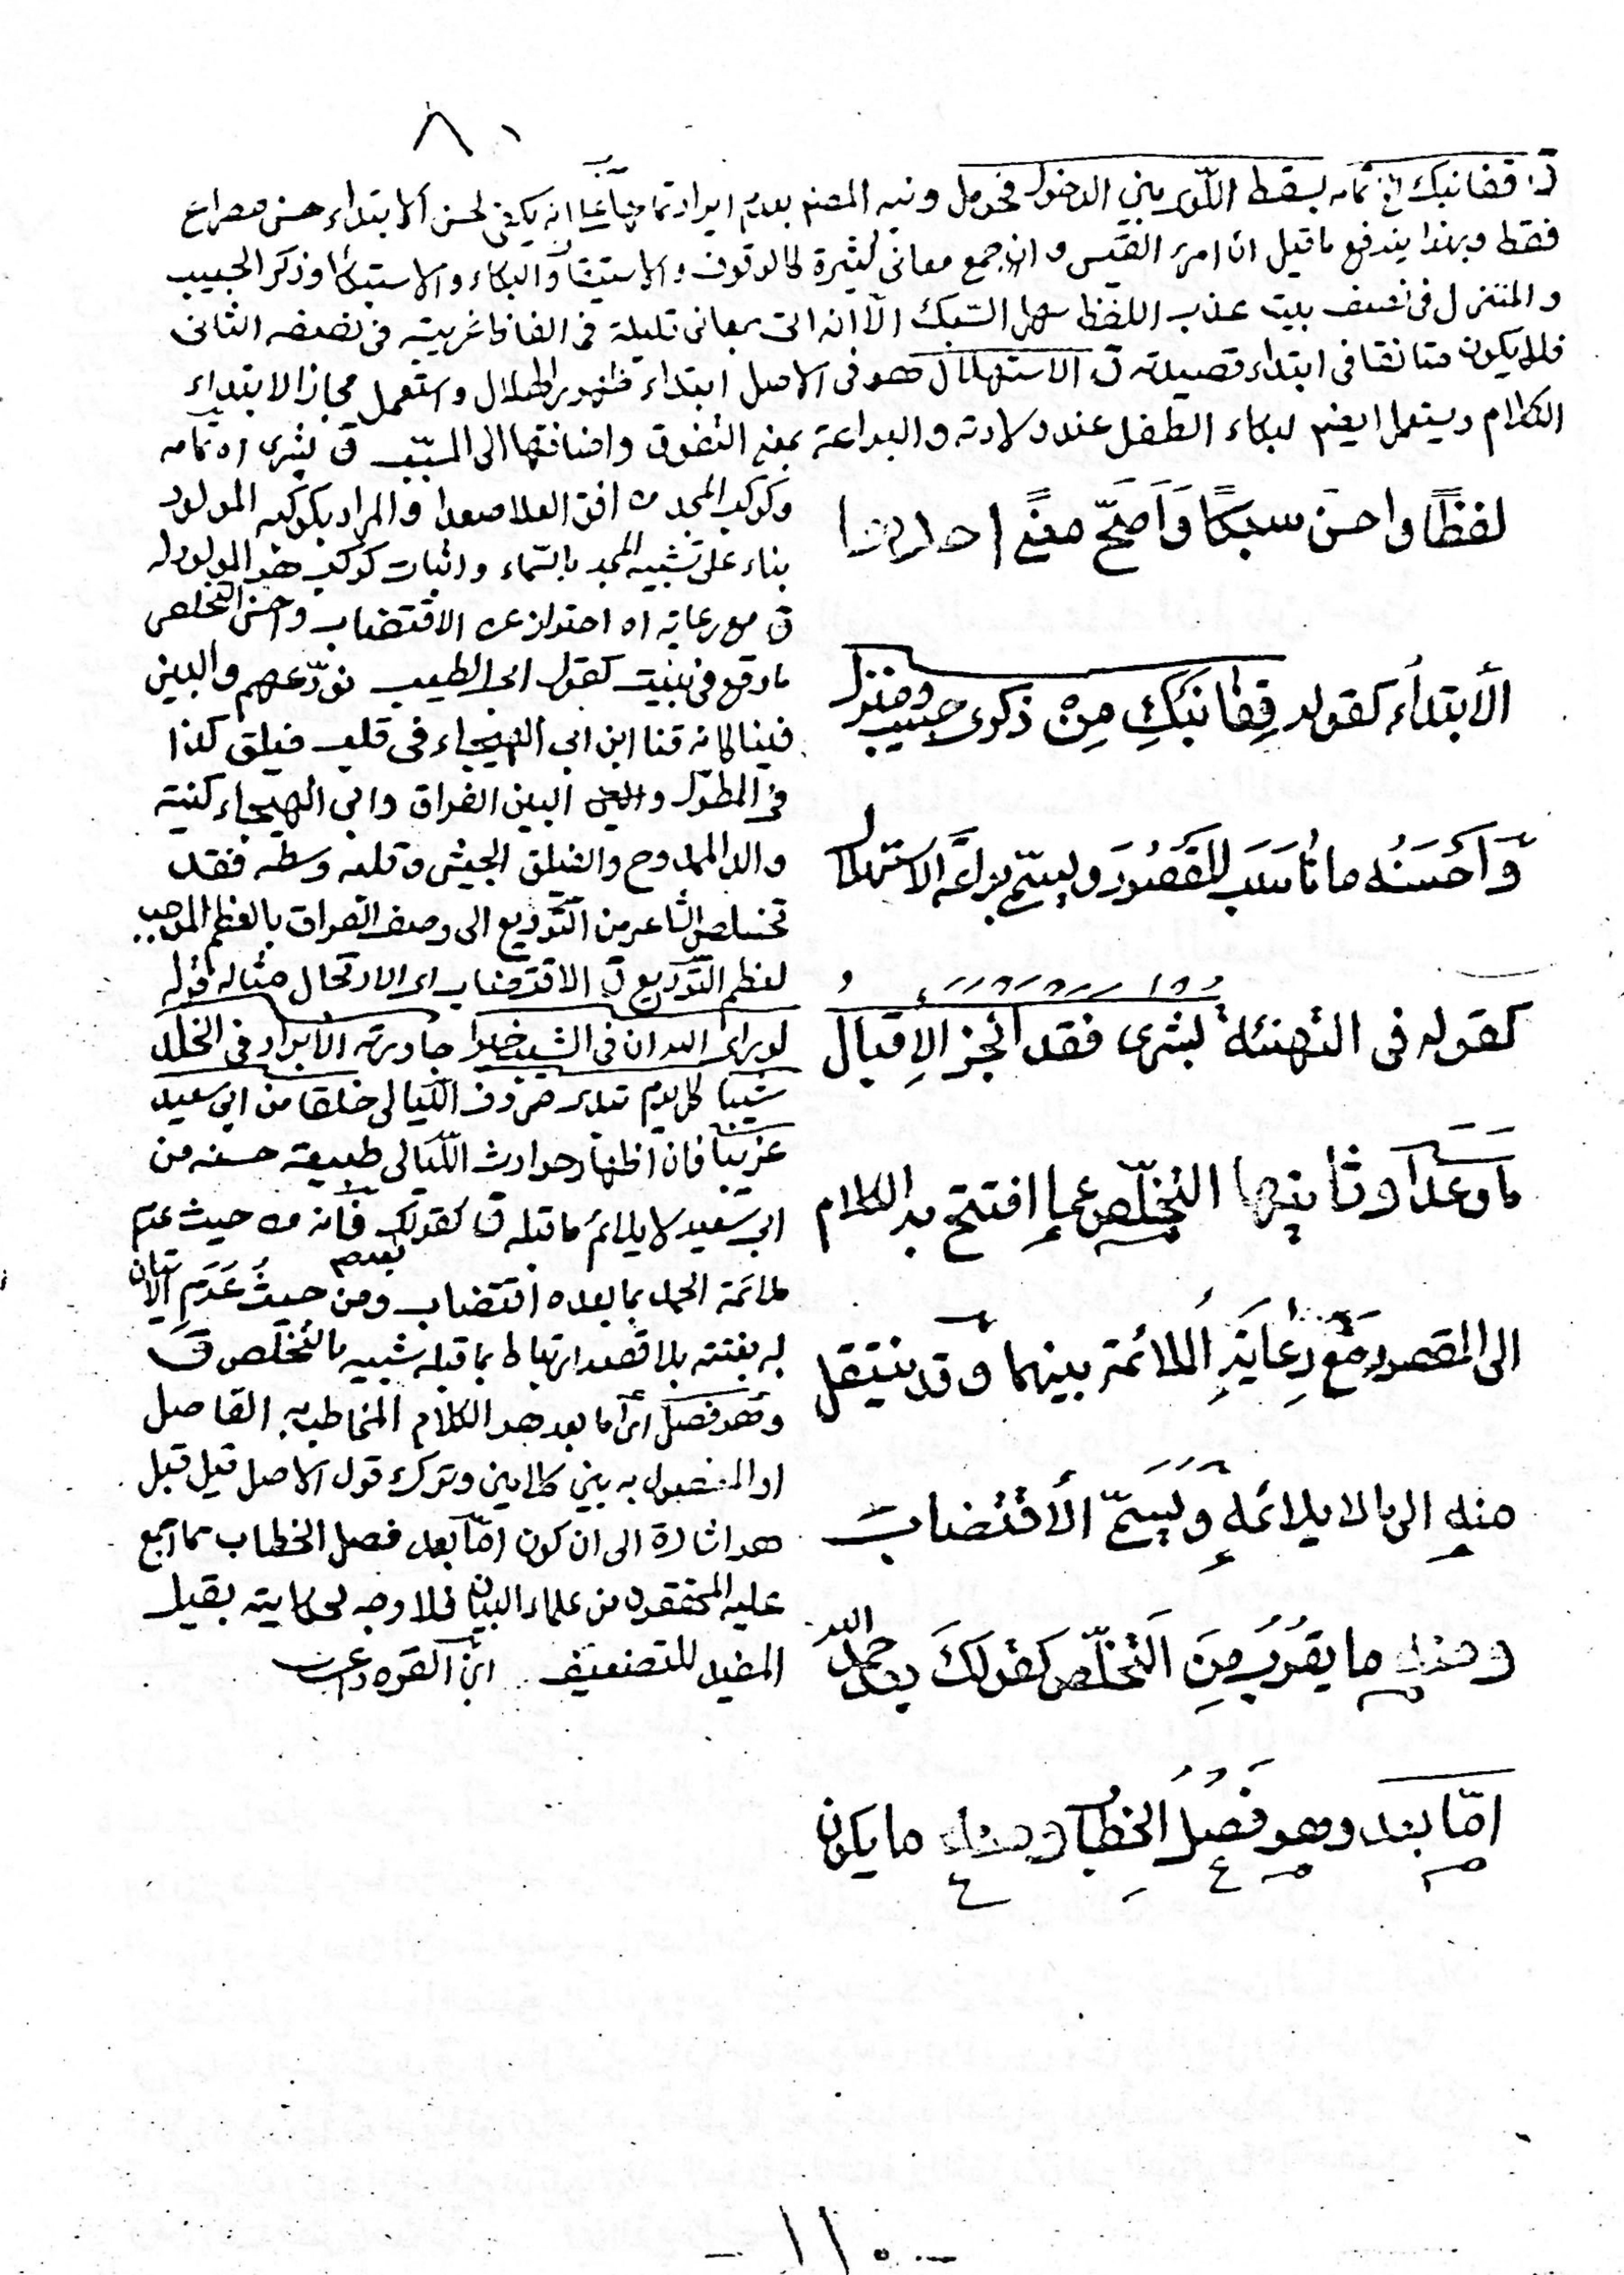 ٨٠
ق قفا نبك الخ تمامه بسقط اللوى بين الدخول فحومل ونبه المصنم بعدم ايراد تمامها على انه يكفى لحسن الابتداء حسن مصراع
فقط وبهذا يندفع ما قيل ان امرء القيس وان جمع معانى كثيرة كالوقوف والاستيقاف والبكاء والاستبكاء وذكر الحبيب
والمنزل فى نصف بيت عذب اللفظ سهل السّبك الّا انه اتى بمعانى قليلة فى الفاظ غريبة فى نصفه الثانى
فلا يكون متانقا فى ابتداء قصيدته ق الاستهلال هو فى الاصل ابتداء ظهور الهلال واستعمل مجازا لابتداء
الكلام ويستعمل ايضم لبكاء الطفل عند ولادته والبراعة بمعنى التفوق واضافتها الى المسبّب ق بشرى اه تمامه
لفظًا واحسن سبكًا وَاَصَحّ معنًى احديها
الأبتداء كقوله قِفَا نَبْكِ مِنْ ذكرى حبيب ومنزل
وَاَحْسَنُه ما نَاسَبَ المَقصُودَ ويسمّى براعَة الاستهلال
كقوله فى التهنئة بُشرى فقد انجز الاِقبال
ما وَعَدَا وثانيها التخلّص عما افتتح به الكلام
الى المقصود مَعَ رِعَايَةِ الملائمة بينهما وقد ينتقل
منهِ الى ما لا يلائمهِ ويُسَمّى الأقتضاب
ومنه ما يقرُبُ مِنَ التخلّص كقولكَ بعد حمد الله
امّا بعد وهو فَصْلُ الخِطَاب ومنه ما يكون
وكوكب المجد من افق العلا صعدا والمراد بكوكبه المولود
بناء على تشبيه المجد بالسّماء واثبات كوكب هو المولود له
ق مع رعاية اه احتراز عن الاقتضاب واحسن التخلص
ما وقع فى بيت كقول ابى الطيب نودّعهم والبين
فينا كانه قنا ابن ابى الهيجاء فى قلب فيلق كذا
فى المطوّل والبين الفراق وابى الهيجاء كنية
والد الممدوح والفيلق الجيش وقلبه وسطه فقد
تخلص الشاعر من التّوديع الى وصف الفراق بالعظم الموجب
لعظم التّوديع ق الاقتضاب اى الارتحال مثاله قوله
لو راى الله ان فى الشيب خيرا جاورته الابرار فى الخلد
شيبا كل يوم تبدى صروف اللّيالى خلقا من ابى سعيد
غريبا فان اظهار حوادث اللّيالى طبيعة حسنه من
ابى سعيد لا يلائم ما قبله ق كقولك فانه من حيث عدم
ملائمة الحمد بما بعده اقتضاب ومن حيثُ عَدَمِ الاتيان
به بغتته بلا قصد ارتباط بما قبله شبيه بالتخلّص ق
وهو فصل اى اما بعد هو الكلام المخاطب به الفاصل
او المفصول به بين كلامين وترك قول الاصل قيل قبل
هو اشارة الى ان كون امّا بعد فصل الخطاب مما اجمع
عليه المحققون من علماء البيان فلا وجه لحكايته بقيل
المفيد للتضعيف ابن القره داغى
- ١١٠ -